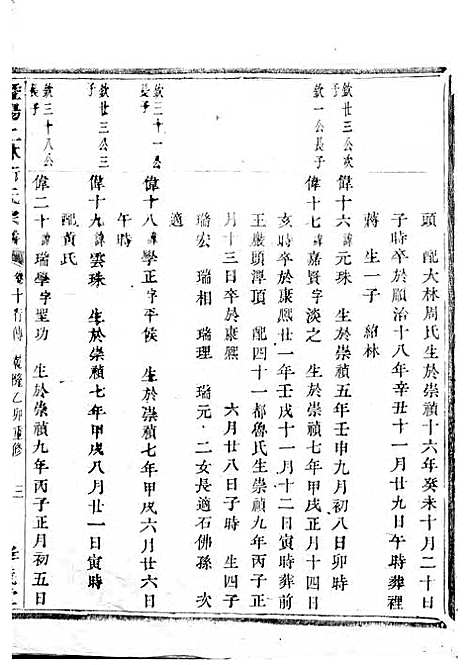 頭　配大林周氏生於崇禎十六年癸未十月二十日
子時卒於順治十八年辛丑十一月廿九日午時葬裡
蔣　生一子　紹林
欽廿三公次子　偉十六諱元珠　生於崇禎五年壬申九月初八日卯時
欽一公長子　偉十七諱嘉賢字淡之　生於崇禎七年甲戌正月十四日
亥時卒於康熙廿一年壬戌十一月十二日寅時葬前
王嚴頭潭項　配四十一都魯氏生崇禎九年丙子正
月十三日卒於康熙　六月廿八日子時　生四子
瑞宏　瑞相　瑞理　瑞元　二女長適石佛孫　次
適
欽三十一公子　偉十八諱學正字平侯　生於崇禎七年甲戌六月廿六日
午時
欽廿三公三子　偉十九諱雲珠　生於崇禎七年甲戌八月廿一日寅時
配黃氏
欽三十八公長子　偉二十諱瑞學字聖功　生於崇禎九年丙子正月初五日
卷十　乙卯重修　三